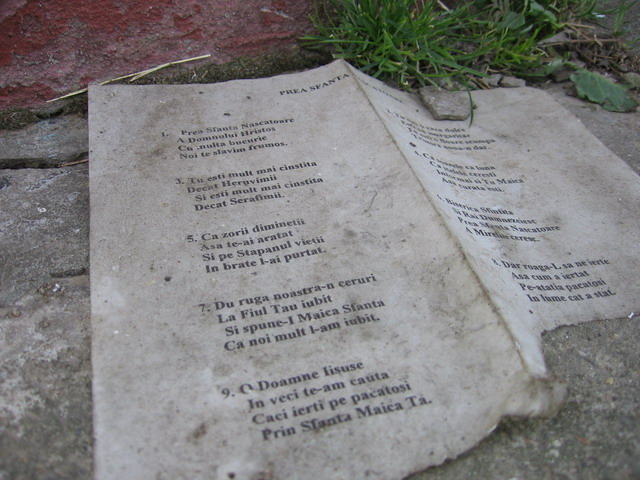 PREA SFANTA
1. Prea Sfanta Nascatoare
A Domnului Hristos
Cu multa bucurie
Noi te slavim frumos.
3. Tu esti mult mai cinstita
Decat Heruvimii
Si esti mult mai cinstita
Decat Serafimii.
5. Ca zorii diminetii
Asa te-ai aratat
Si pe Stapanul vietii
In brate l-ai purtat.
7. Du ruga noastra-n ceruri
La Fiul Tau iubit
Si spune-I Maica Sfanta
Ca noi mult l-am iubit.
9. O Doamne Iisuse
In veci te-am cauta
Caci ierti pe pacatosi
Prin Sfanta Maica Ta.
dulce
4. Ca luna
ceresti
si Ta Maica
Asa curata esti.
Biserica Sfintita
Si Rai Dumnezeiesc
Prea Sfanta Nascatoare
A Mirelui ceresc.
8. Dar roaga-L sa ne ierte
Asa cum a iertat
Pe-atatia pacatosi
In lume cat a stat.